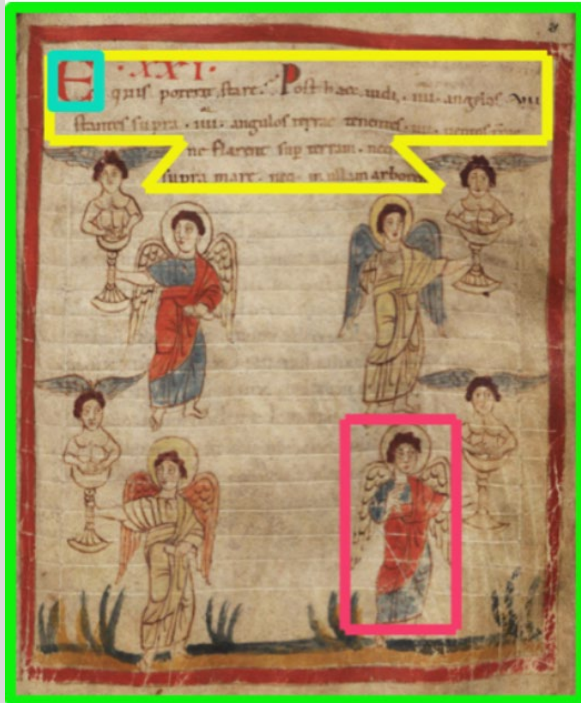 E · XXI ·
quis poterit stare. Post haec uidi · iiii · angelos
stantes supra · iiii · angulos terrae tenentes · iiii · uentos
ne flarent sup terram · neq
supra mare · neq · in ullam arbore